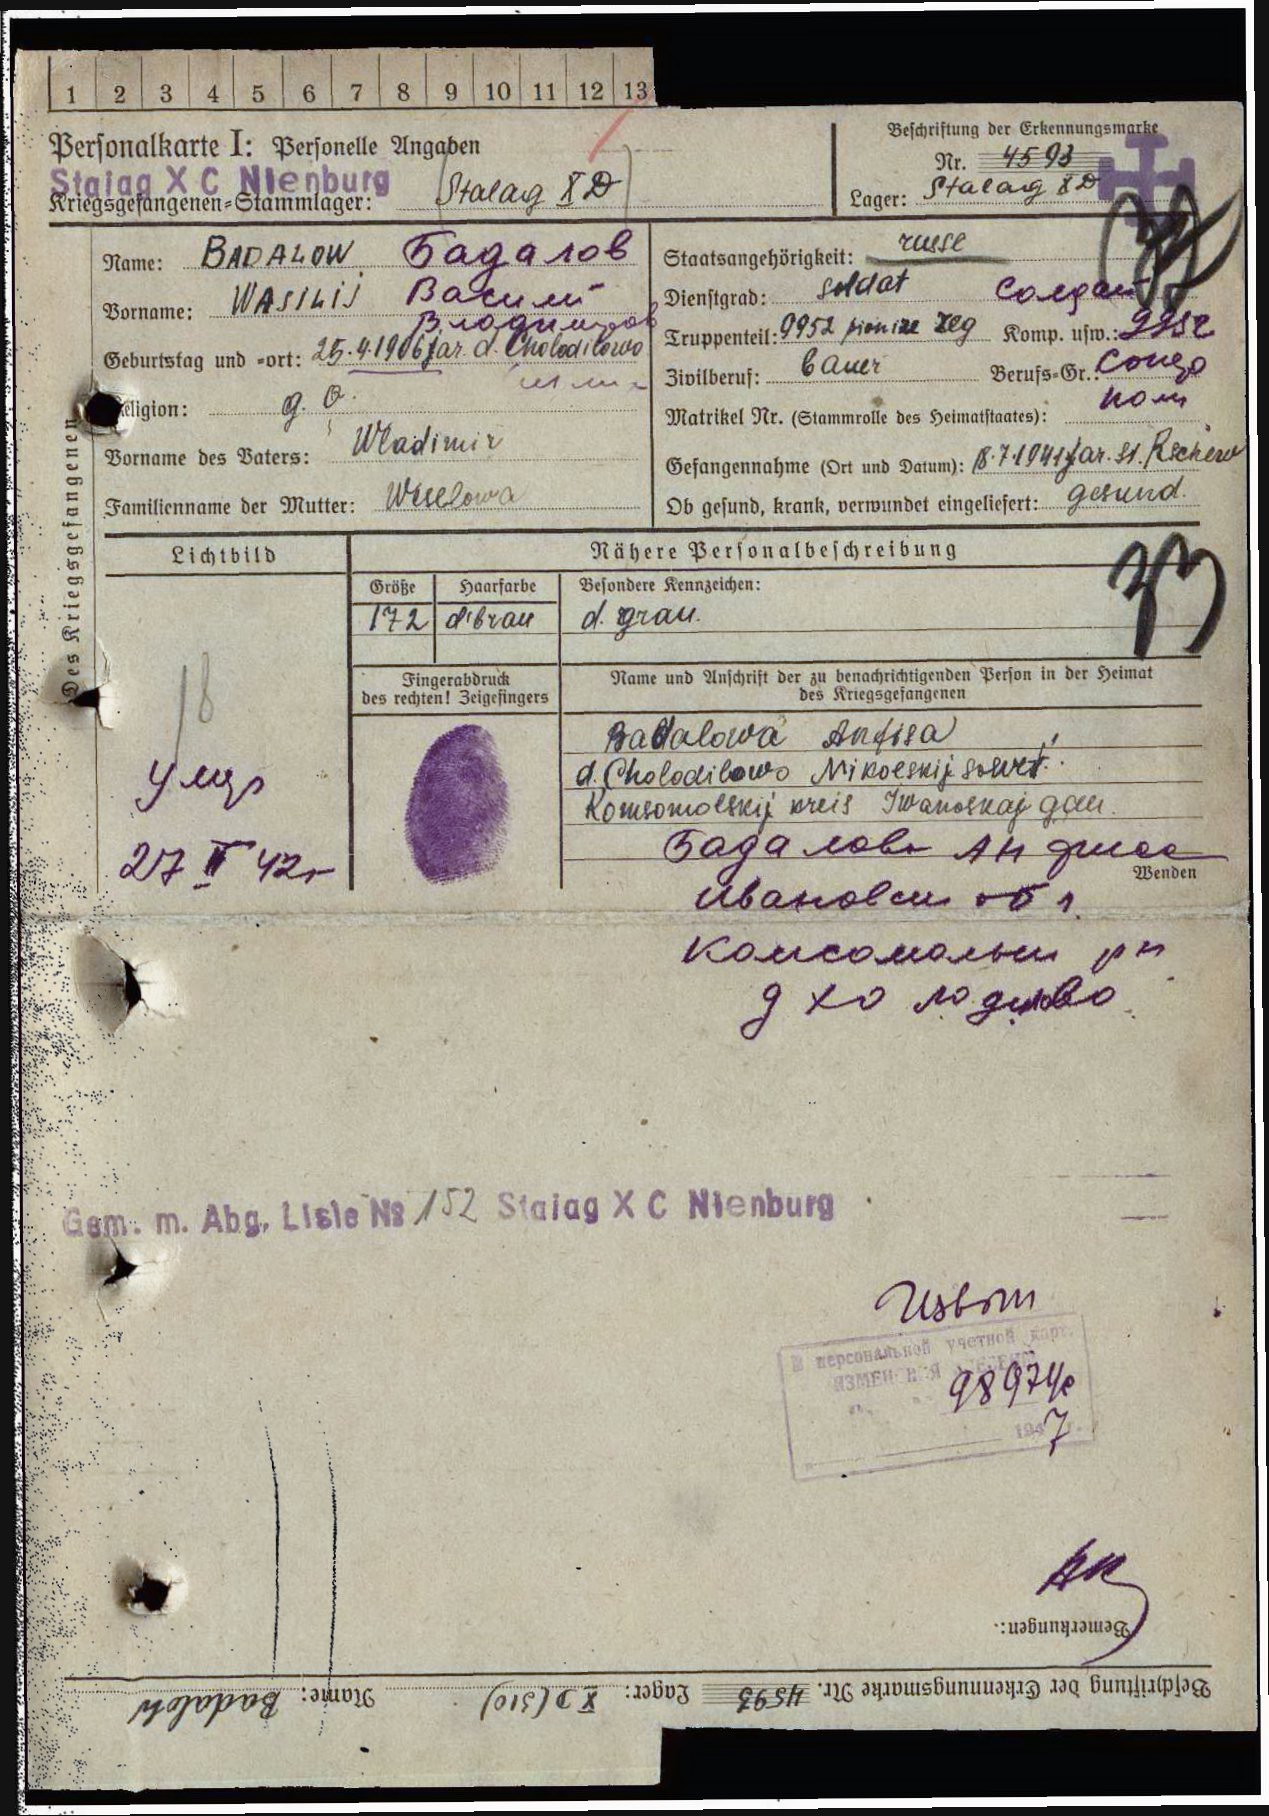 1 2 3 4 5 6 7 8 9 10 11 12 13
Personalkarte I: Personelle Angaben
Stalag X C Nienburg
Kriegsgefangenen-Stammlager: Stalag X D
Beschriftung der Erkennungsmarke
Nr. 4593
Lager: Stalag X D
Des Kriegsgefangenen
Name: BADALOW Бадалов
Vorname: WASILIJ Василий
Владимиров
Geburtstag und -ort: 25.4.1906 Jar. d. Cholodilowo
Religion: g. o.
Vorname des Vaters: Wladimir
Familienname der Mutter: Weselowa
Staatsangehörigkeit: russe
Dienstgrad: Soldat Солдат
Truppenteil: 9952 pionize Reg Komp. usw.: 9952
Zivilberuf: bauer Berufs-Gr.:
Matrikel Nr. (Stammrolle des Heimatstaates):
Gefangennahme (Ort und Datum): 8.7.1941 Jar. St. Rschew
Ob gesund, krank, verwundet eingeliefert: gesund.
Lichtbild
Nähere Personalbeschreibung
Größe Haarfarbe Besondere Kennzeichen:
172 d'brau d. grau.
Fingerabdruck
des rechten! Zeigefingers
Name und Anschrift der zu benachrichtigenden Person in der Heimat
des Kriegsgefangenen
Badalowa Anfisa
d. Cholodilowo Nikolskij sowet.
Komsomolskij kreis Iwanoskaj gau.
Бадалова Анфиса
Wenden
Ивановск об л
Комсомольск рн
д Холодилово
18
Умер
27 II 42 г
Gem. m. Abg. Liste № 152 Stalag X C Nienburg
В персональной учетной карт.
ИЗМЕНЕНИЯ
98974с
1947 г.
Bemerkungen:
Beschriftung der Erkennungsmarke Nr. 4593 Lager: X D (310) Name: Badalow